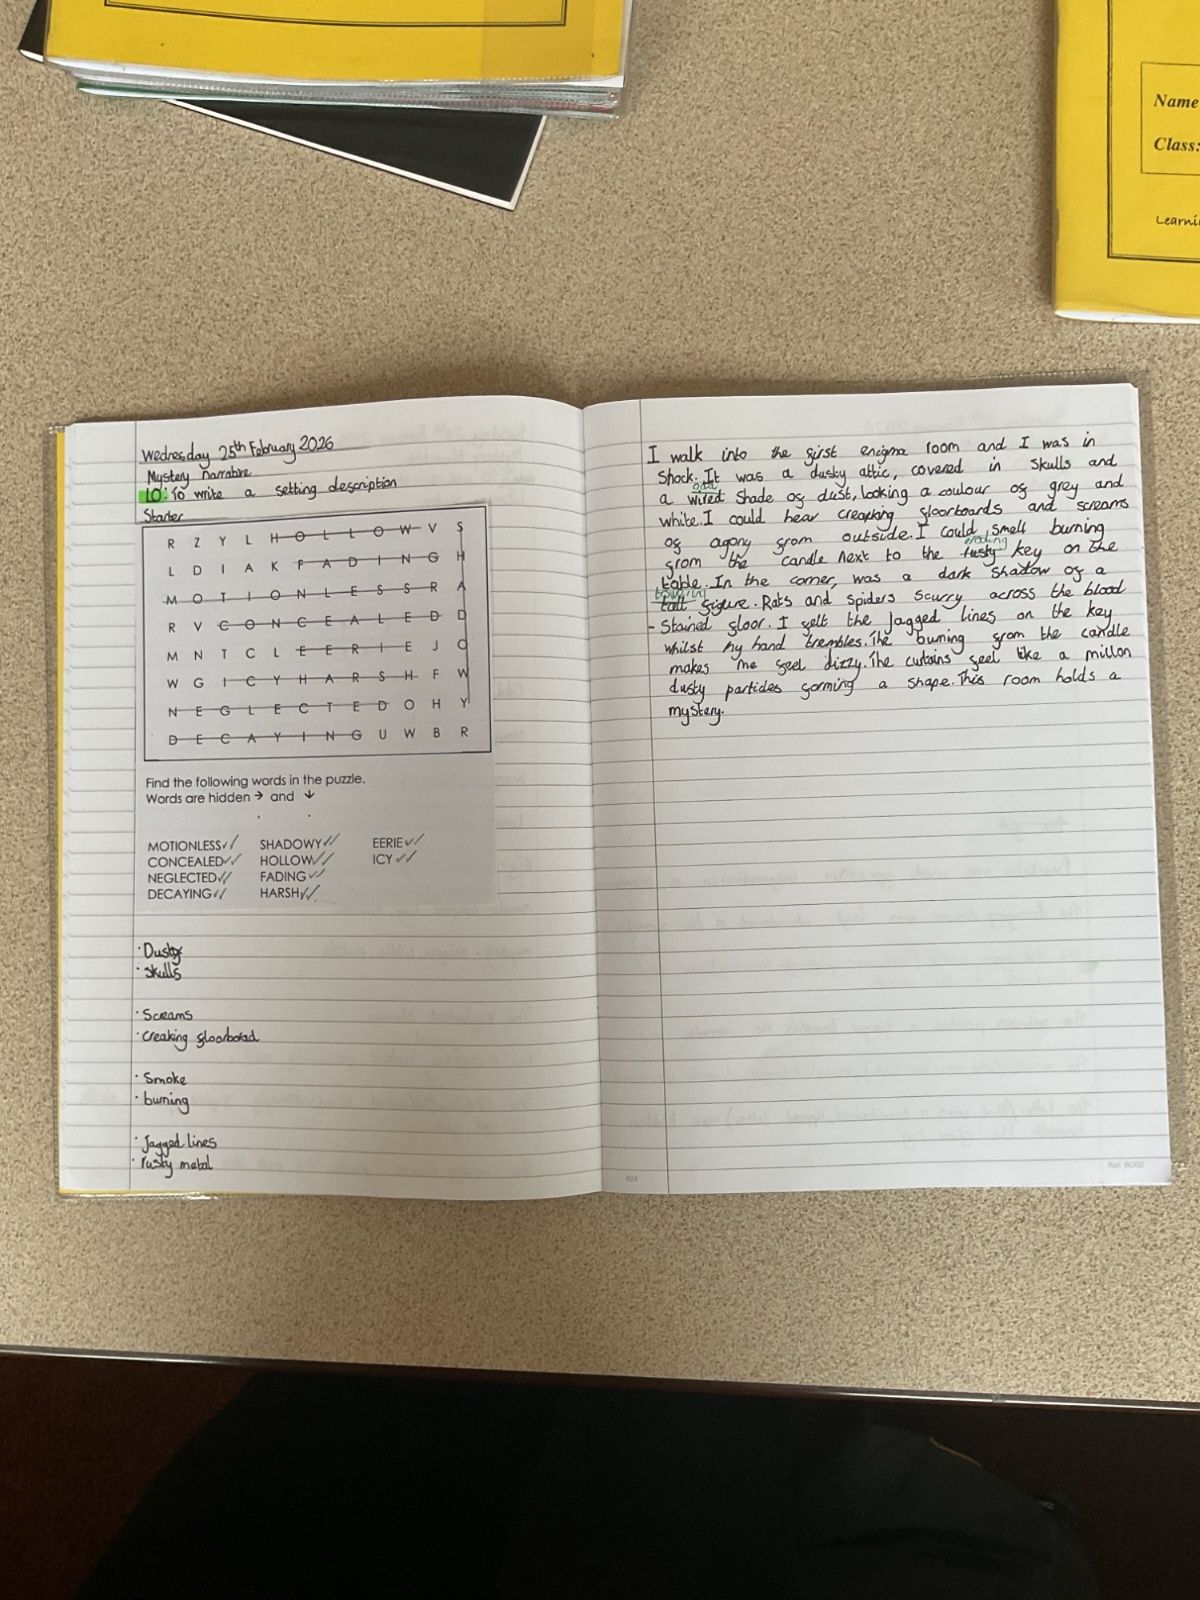 Name
Class:
Learni
Wednesday 25th February 2026
Mystery narrative
LO: To write a setting description
Starter
R Z Y L H O L L O W V S
L D I A K F A D I N G H
M O T I O N L E S S R A
R V C O N C E A L E D D
M N T C L E E R I E J O
W G I C Y H A R S H F W
N E G L E C T E D O H Y
D E C A Y I N G U W B R
Find the following words in the puzzle.
Words are hidden → and ↓
MOTIONLESS SHADOWY EERIE
CONCEALED HOLLOW ICY
NEGLECTED FADING
DECAYING HARSH
· Dusty
· Skulls
· Screams
· creaking floorboad
· Smoke
· burning
· Jagged lines
· rusty metal
I walk into the first enigma room and I was in
Shock. It was a dusty attic, covered in skulls and
odd
a wired shade of dust, looking a coulour of grey and
white. I could hear creaking floorboards and screams
of agony from outside. I could smell burning
eroding
from the candle next to the rusty key on the
table. In the corner, was a dark shadow of a
towering
tall figure. Rats and spiders scurry across the blood
- Stained floor. I felt the Jagged lines on the key
whilst my hand trembles. The burning from the candle
makes me feel dizzy. The curtains feel like a millon
dusty particles forming a shape. This room holds a
mystery.
424
Ref: BG02